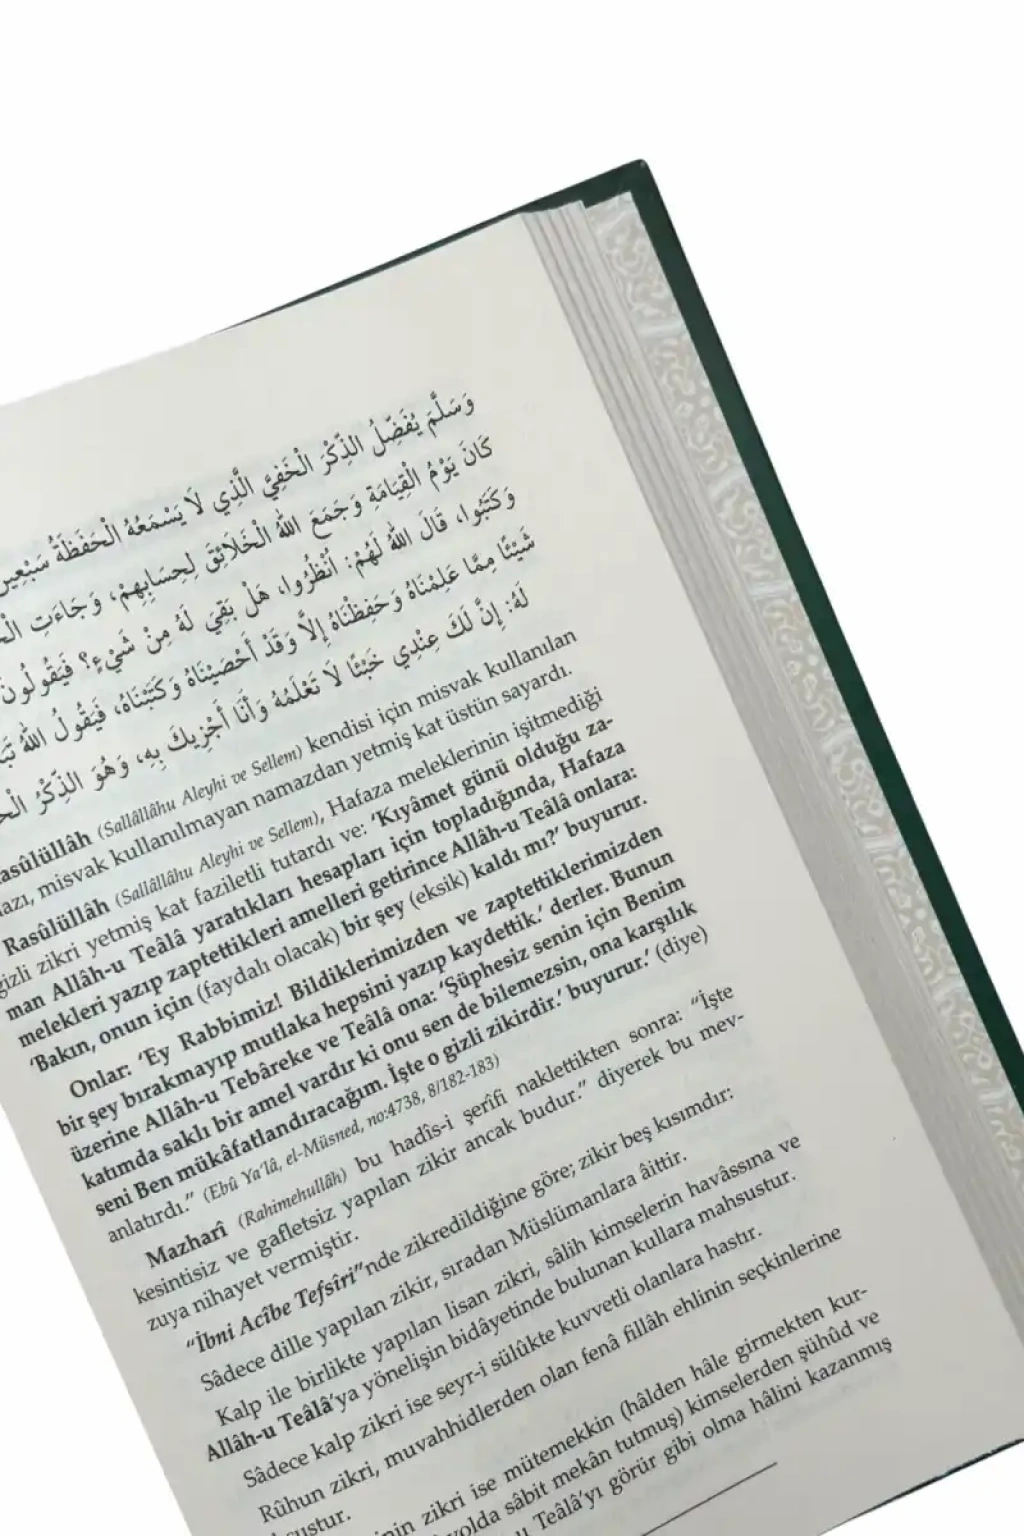 وَسَلَّمَ يُفَضِّلُ الذِّكْرَ الْخَفِيَّ الَّذِي لَا يَسْمَعُهُ الْحَفَظَةُ سَبْعِينَ
كَانَ يَوْمُ الْقِيَامَةِ وَجَمَعَ اللهُ الْخَلَائِقَ لِحِسَابِهِمْ، وَجَاءَتِ
وَكَتَبُوا، قَالَ اللهُ لَهُمْ: اُنْظُرُوا، هَلْ بَقِيَ لَهُ مِنْ شَيْءٍ؟ فَيَقُولُونَ
شَيْئًا مِمَّا عَلِمْنَاهُ وَحَفِظْنَاهُ إِلَّا وَقَدْ أَحْصَيْنَاهُ وَكَتَبْنَاهُ، فَيَقُولُ اللهُ
لَهُ: إِنَّ لَكَ عِنْدِي خَبْئًا لَا تَعْلَمُهُ وَأَنَا أَجْزِيكَ بِهِ، وَهُوَ الذِّكْرُ
asûlüllâh (Sallâllâhu Aleyhi ve Sellem) kendisi için misvak kullanılan
azı, misvak kullanılmayan namazdan yetmiş kat üstün sayardı.
Rasûlüllâh (Sallâllâhu Aleyhi ve Sellem), Hafaza meleklerinin işitmediği
gizli zikri yetmiş kat faziletli tutardı ve: ‘Kıyâmet günü olduğu za-
man Allâh-u Teâlâ yaratıkları hesapları için topladığında, Hafaza
melekleri yazıp zaptettikleri amelleri getirince Allâh-u Teâlâ onlara:
‘Bakın, onun için (faydalı olacak) bir şey (eksik) kaldı mı?’ buyurur.
Onlar: ‘Ey Rabbimiz! Bildiklerimizden ve zaptettiklerimizden
bir şey bırakmayıp mutlaka hepsini yazıp kaydettik.’ derler. Bunun
üzerine Allâh-u Tebâreke ve Teâlâ ona: ‘Şüphesiz senin için Benim
katımda saklı bir amel vardır ki onu sen de bilemezsin, ona karşılık
seni Ben mükâfatlandıracağım. İşte o gizli zikirdir.’ buyurur.’ (diye)
anlatırdı.” (Ebû Ya‘lâ, el-Müsned, no:4738, 8/182-183)
Mazharî (Rahimehullâh) bu hadîs-i şerîfi naklettikten sonra: “İşte
kesintisiz ve gafletsiz yapılan zikir ancak budur.” diyerek bu mev-
zuya nihayet vermiştir.
“İbni Acîbe Tefsîri”nde zikredildiğine göre; zikir beş kısımdır:
Sâdece dille yapılan zikir, sıradan Müslümanlara âittir.
Kalp ile birlikte yapılan lisan zikri, sâlih kimselerin havâssına ve
Allâh-u Teâlâ’ya yönelişin bidâyetinde bulunan kullara mahsustur.
Sâdece kalp zikri ise seyr-i sülûkte kuvvetli olanlara hastır.
Rûhun zikri, muvahhidlerden olan fenâ fillâh ehlinin seçkinlerine
sustur.
zikri ise mütemekkin (hâlden hâle girmekten kur-
yolda sâbit mekân tutmuş) kimselerden şühûd ve
Teâlâ’yı görür gibi olma hâlini kazanmış